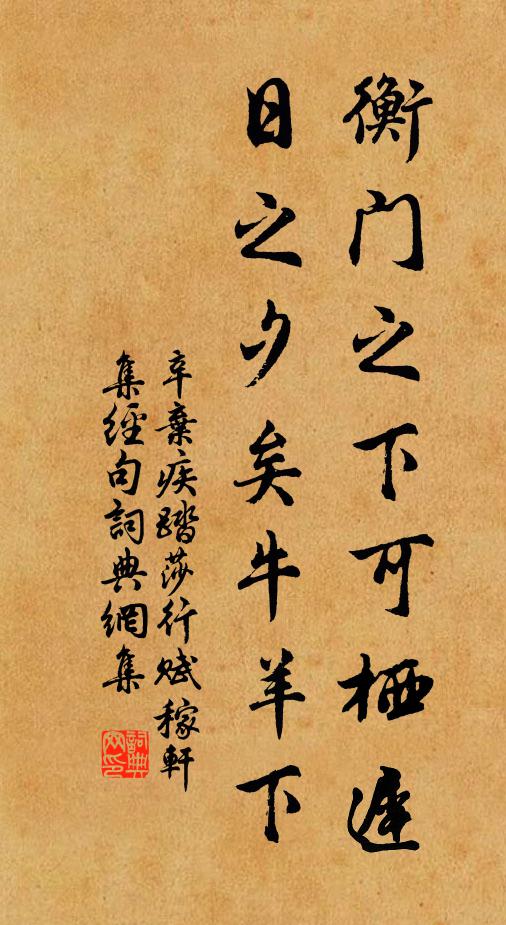 衡门之下可栖遲
日之夕矣牛羊下
辛棄疾踏莎行賦稼軒
集經句詞典網集
詞典網印